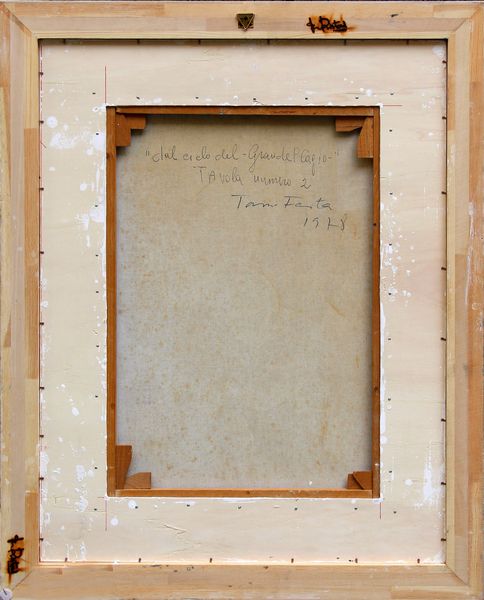 "dal ciclo del - Grande Plagio -"
TAvola numero 2
Tano Festa
1978